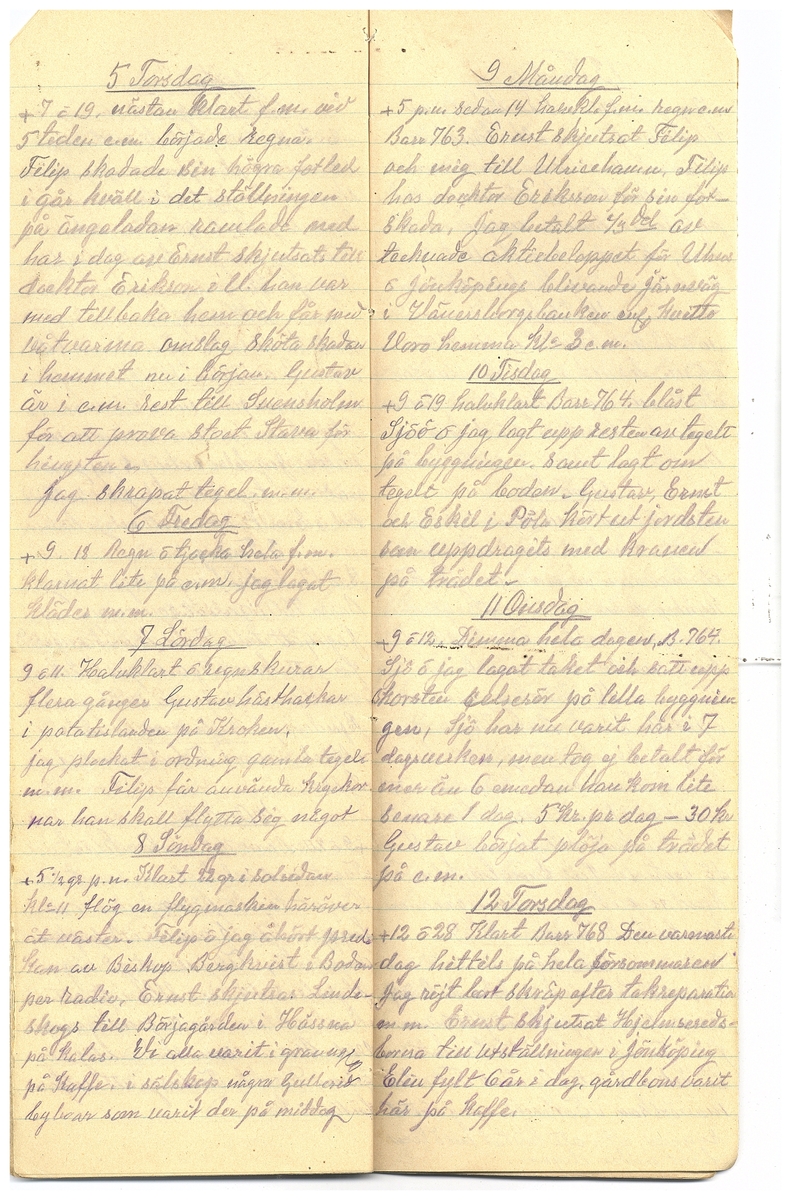 5 Torsdag
+7 o 19. nästan klart f.m. vid
5 tiden e.m. började regna.
Filip skadade sin högra fotled
i går kväll i det ställningen
på ängaladan ramlade ned
har i dag av Ernst skjutsats till
docktor Erikson i U. han var
med tillbaka hem och får med
våtvarma omslag sköta skadan
i hemmet nu i början. Gustav
är i e.m. rest till Svensholm
för att prova stoet Stava för
hingsten.
Jag skrapat tegel m.m.
6 Fredag
+9 18 Regn o tjocka hela f.m.
klarnat lite på e.m. jag lagat
kläder m.m.
7 Lördag
9 o 11. Halvklart o regnskurar
flera gånger Gustav hästhackar
i potatislanden på Kroken.
jag plockat i ordning gamla tegel
m.m. Filip får använda kryckor
nar han skall flytta sig något
8 Söndag
+5 1/2 gr p.n. Klart 22 gr i solsidan
kl= 11 flög en flygmaskin häröver
åt väster. Filip o jag åhört predi-
kan av Biskop Bergkvist i Bodan
per radio, Ernst skjutsar Linde-
skogs till Börjagården i Hässna
på kalas. Vi alla varit i
på Kaffe. i sälskap några Gullered
byboar som varit der på middag
9 Måndag
+5 p.n. sedan 14 halvkl. f.m. regn e.m
Barr 763. Ernst skjutsat Filip
och mig till Ulricehamn, Filip
hos docktor Erikson för sin fot-
skada, jag betalt 1/3 del av
tecknade aktiebeloppet för Ulrics
o Jönköpings blivande järnväg
i Vänersborgsbanken enl. kvitto
Voro hemma kl= 3 e.m.
10 Tisdag
+9 o 19 halvklart Barr 764. blåst
Sjöö o jag lagt upp resten av teglet
på byggningen. samt lagt om
teglet på boden. Gustav, Ernst
och Eskil i Påls kört ut jordsten
som uppdragits med kranen
på trädet.
11 Onsdag
+9 o 12. Dimma hela dagen, B. 764.
Sjö o jag lagat taket och satt upp
skorsten på lilla byggnin-
gen, Sjö har nu varit här i 7
dagsverken, men tog ej betalt för
mer än 6 emedan han kom lite
senare 1 dag. 5 kr. pr dag – 30 kr
Gustav börjat plöja på trädet
på e.m.
12 Torsdag
+12 o 28 Klart Barr 768 Den varmaste
dag hittils på hela försommaren
Jag röjt bort skräp efter takreparatio
m.m. Ernst skjutsat Hjelmsereds-
borna till utställningen i Jönköping
Elin fylt 6 år i dag, gårdbons varit
här på Kaffe.